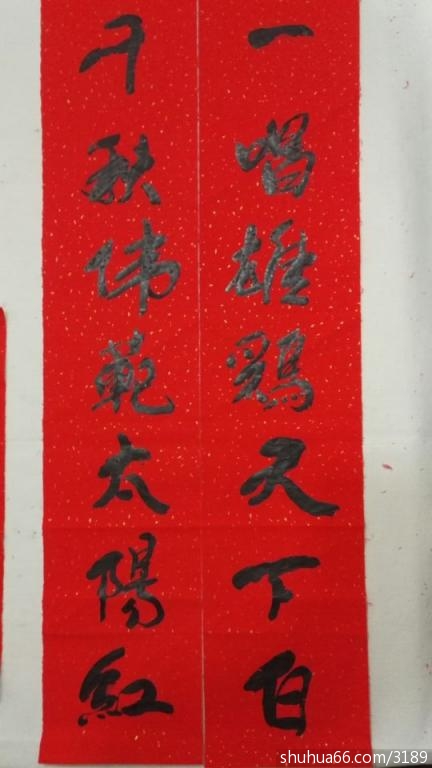 一唱雄鷄天下白
千秋伟範太陽紅
shuhua66.com/3189